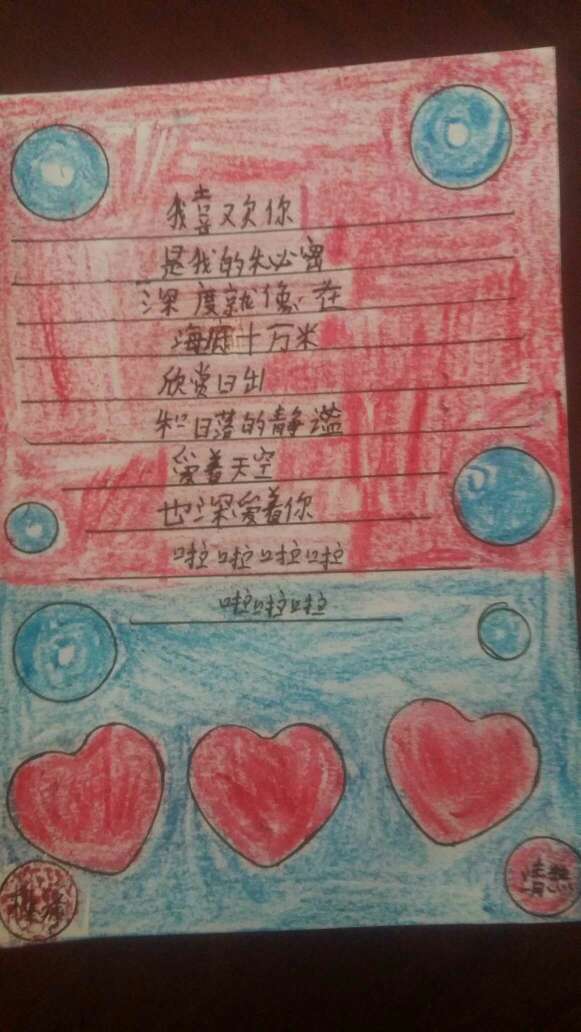 我喜欢你
是我的秘密
深度就像在
海底十万米
欣赏日出
和日落的静谧
爱着天空
也深爱着你
啦啦啦啦
啦啦啦